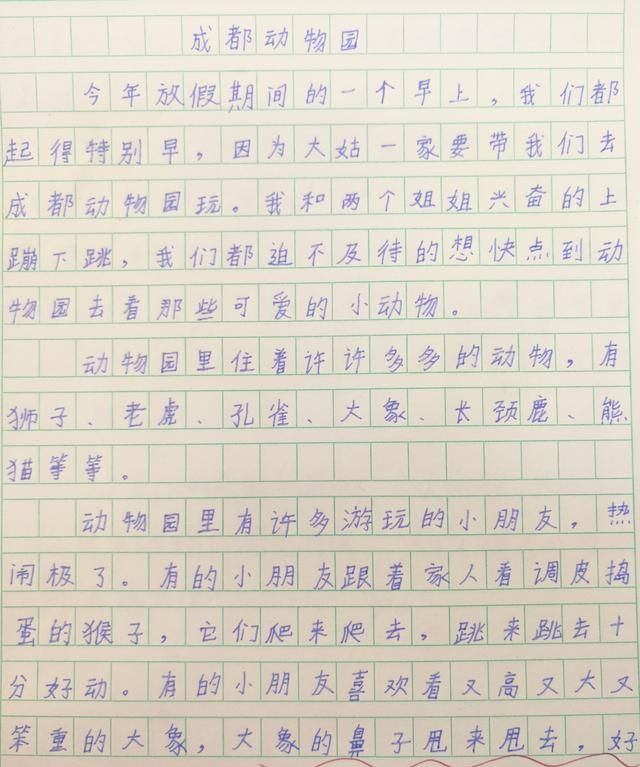 成都动物园
今年放假期间的一个早上，我们都
起得特别早，因为大姑一家要带我们去
成都动物园玩。我和两个姐姐兴奋的上
蹦下跳，我们都迫不及待的想快点到动
物园去看那些可爱的小动物。
动物园里住着许许多多的动物，有
狮子、老虎、孔雀、大象、长颈鹿、熊
猫等等。
动物园里有许多游玩的小朋友，热
闹极了。有的小朋友跟着家人看调皮捣
蛋的猴子，它们爬来爬去，跳来跳去十
分好动。有的小朋友喜欢看又高又大又
笨重的大象，大象的鼻子甩来甩去，好